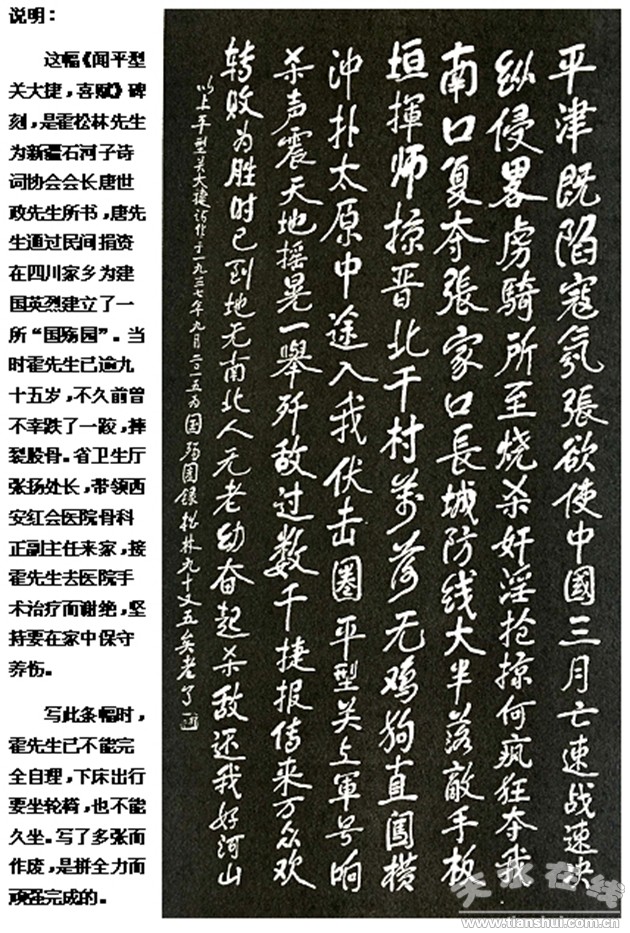 说明：
这幅《闻平型
关大捷，喜赋》碑
刻，是霍松林先生
为新疆石河子诗
词协会会长唐世
政先生所书，唐先
生通过民间捐资
在四川家乡为建
国英烈建立了一
所“国殇园”。当
时霍先生已逾九
十五岁，不久前曾
不幸跌了一跤，摔
裂股骨。省卫生厅
张扬处长，带领西
安红会医院骨科
正副主任来家，接
霍先生去医院手
术治疗而谢绝，坚
持要在家中保守
养伤。
写此条幅时，
霍先生已不能完
全自理，下床出行
要坐轮椅，也不能
久坐。写了多张而
作废，是拼全力而
顽强完成的。
平津既陷寇氛張欲使中國三月亡速战速决
纵侵畧虏骑所至烧杀奸淫抢掠何疯狂夺我
南口复夺張家口長城防线大半落敵手板
垣揮师掠晋北千村萬落无鸡狗直闯横
冲扑太原中途入我伏击圈平型关上軍号响
杀声震天地摇晃一舉歼敌过数千捷报传来万众欢
转败为胜时已到地无南北人无老幼奋起杀敌还我好河山
以上平型关大捷诗作于一九三七年九月二〇一五为国殇园録松林九十又五矣老了
天水在线
www.tianshui.com.cn